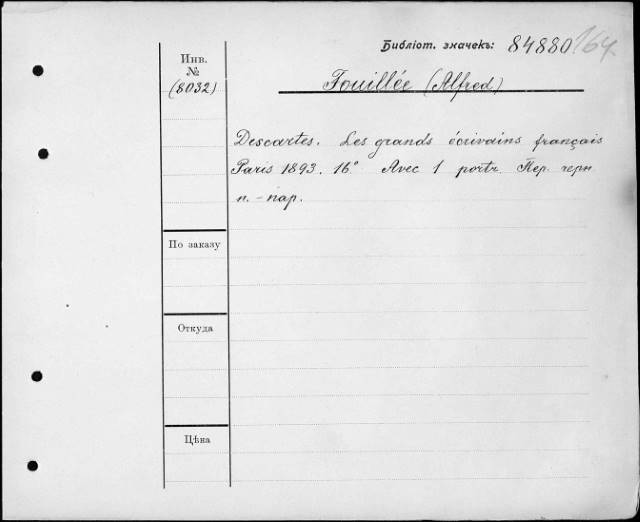 Библіот. значекъ: 84880 164.
Инв.
№
(8032)
Fouillée (Alfred)
Descartes. Les grands écrivains français
Paris 1893. 16° Avec 1 portr. Пер. черн
п. - пар.
По заказу
Откуда
Цѣна